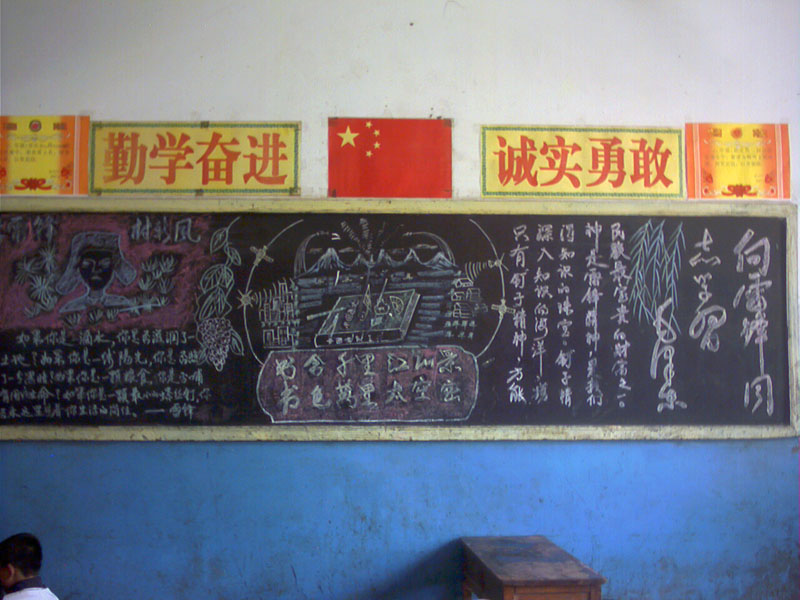 勤学奋进
诚实勇敢
雷锋 树新风
如果你是一滴水,你是否滋润了
土地?如果你是一线阳光,你是否照
了一分黑暗?如果你是一颗粮食,你是否哺
有用的生命?如果你是一颗最小的螺丝钉,你
永远坚守着你生活的岗位。——雷锋
含千里江山景
包萬里太空
只有钉子精神,方能
深入知识的海洋,摘
得知识的珠宝。钉子精
神是雷锋精神,是我们
民族最宝贵的财富之一。
向雷锋同
志学習
毛泽东